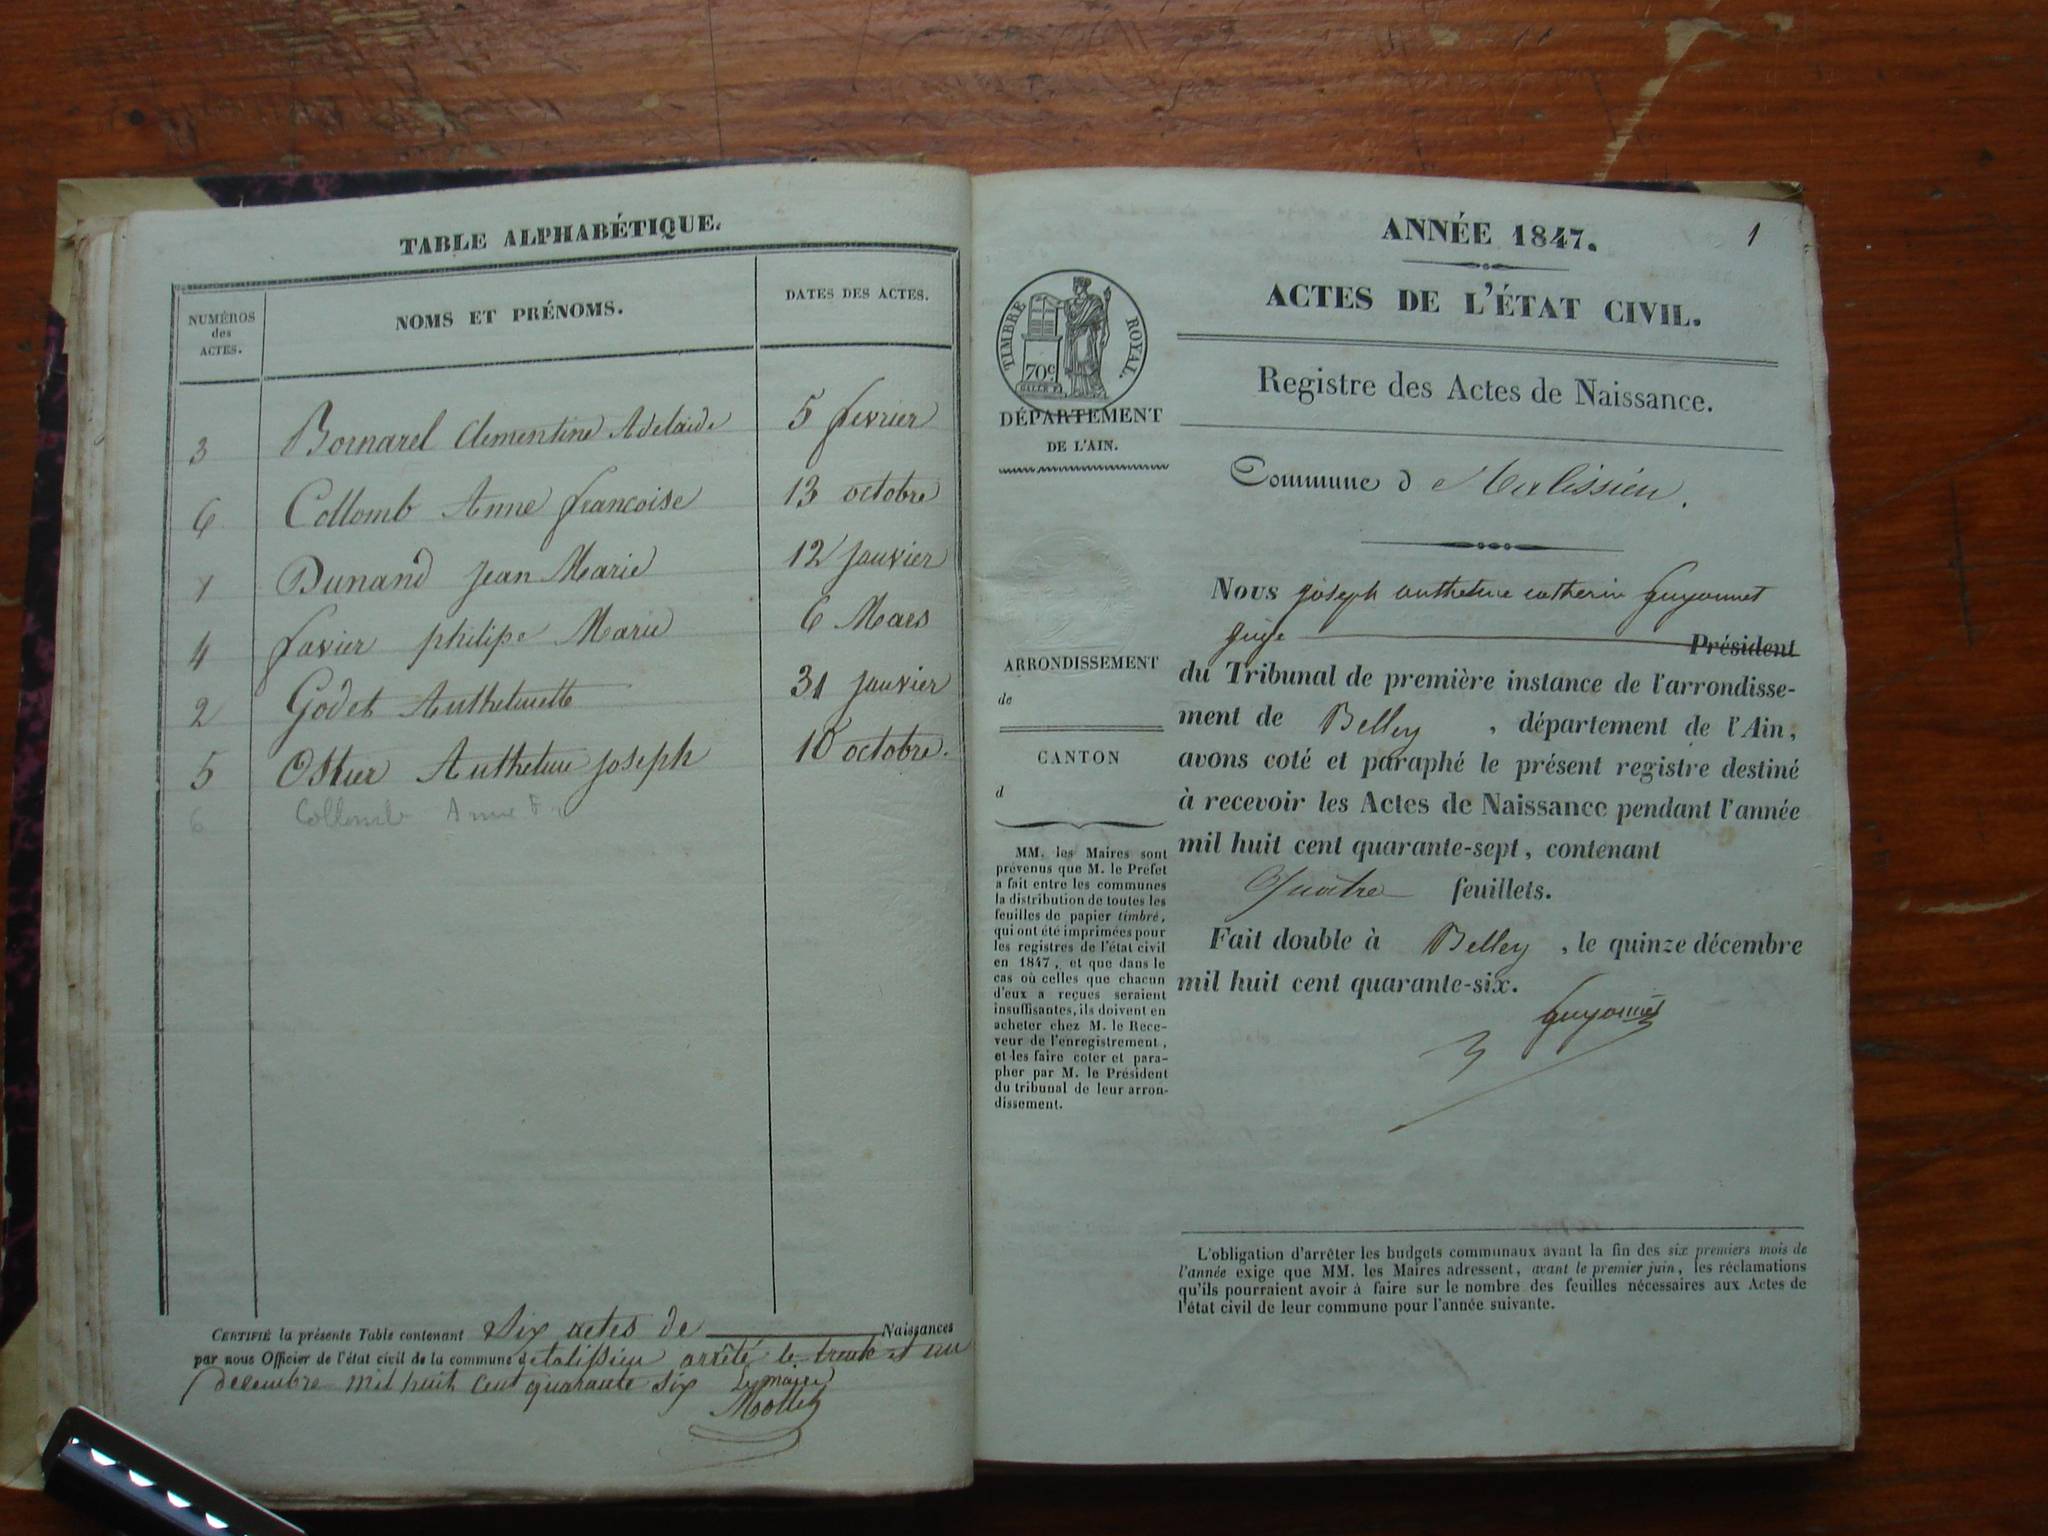 TABLE ALPHABÉTIQUE.
NUMÉROS
des
ACTES.
NOMS ET PRÉNOMS.
DATES DES ACTES.
3 Bornarel Clementine Adelaide 5 fevrier
6 Collomb Anne francoise 13 octobre
1 Dunand jean Marie 12 janvier
4 favier philipe Marie 6 Mars
2 Godet Anthelmette 31 janvier
5 Anthelme joseph 10 octobre.
6 Collomb Anne Fr
CERTIFIÉ la présente Table contenant Six actes de Naissances
par nous Officier de l'état civil de la commune d arrêté le trente et un
decembre mil huit cent quarante six Le maire
Mollet
1
ANNÉE 1847.
ACTES DE L'ÉTAT CIVIL.
TIMBRE ROYAL.
70c
DÉPARTEMENT
DE L'AIN.
Registre des Actes de Naissance.
Commune d
Nous joseph anthelme catherin guyonnet
juge Président
du Tribunal de première instance de l'arrondisse-
ment de Belley , département de l'Ain,
avons coté et paraphé le présent registre destiné
à recevoir les Actes de Naissance pendant l'année
mil huit cent quarante-sept, contenant
Quatre feuillets.
Fait double à Belley , le quinze décembre
mil huit cent quarante-six.
guyonnet
ARRONDISSEMENT
de
CANTON
d
MM. les Maires sont
prévenus que M. le Préfet
a fait entre les communes
la distribution de toutes les
feuilles de papier timbré,
qui ont été imprimées pour
les registres de l'état civil
en 1847, et que dans le
cas où celles que chacun
d'eux a reçues seraient
insuffisantes, ils doivent en
acheter chez M. le Rece-
veur de l'enregistrement,
et les faire coter et para-
pher par M. le Président
du tribunal de leur arron-
dissement.
L'obligation d'arrêter les budgets communaux avant la fin des six premiers mois de
l'année exige que MM. les Maires adressent, avant le premier juin, les réclamations
qu'ils pourraient avoir à faire sur le nombre des feuilles nécessaires aux Actes de
l'état civil de leur commune pour l'année suivante.